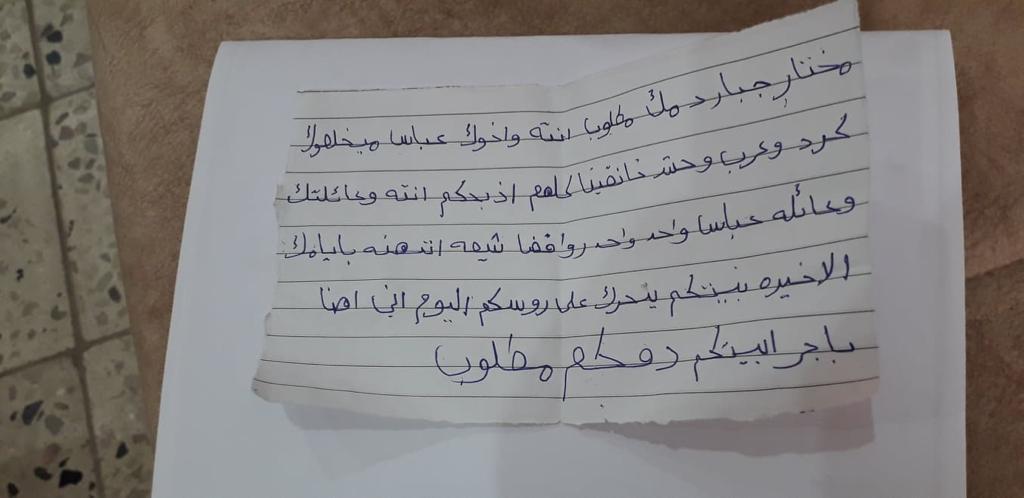 مختار جبار دمك مطلوب انته واخوك عباس ميخلصوك
كرد وعرب وحشد خانقين كلهم اذبحكم انته وعائلتك
وعائله عباس واحد واحد روافض شيعه اتهنه بايامك
الاخيره بيتكم ينحرك على روسكم اليوم اني اهنا
باجر ابيتكم دمكم مطلوب